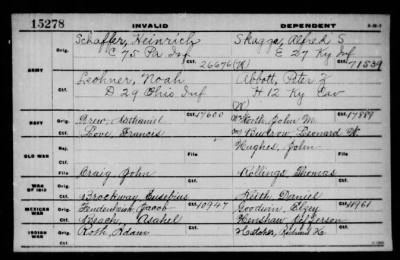 15278 INVALID DEPENDENT
Orig. Schaffer, Heinrich Skaggs, Alfred S
C 75 Pa Inf E 27 Ky Inf
ARMY 26676 (W) 71539
Ctf. Lechner, Noah Abbott, Peter Z
D 29 Ohio Inf H 12 Ky Cav
(W)
NAVY Orig. Drew, Nathaniel Ctf. 17600 North, John M. Ctf. 17889
Ctf. Love, Francis Leonard W.
OLD WAR Orig. Hughes, John
File File
Ctf. Craig, John Rollings, Thomas
WAR OF 1812 Orig.
Ctf. Brockway, Eusebius Keith, Daniel
MEXICAN WAR Orig. Jacob Ctf. 10947 Goodwin, Elzey Ctf. 10961
Ctf. Beach, Asahel Henshaw, Jefferson
INDIAN WAR Orig. Roth, Adam